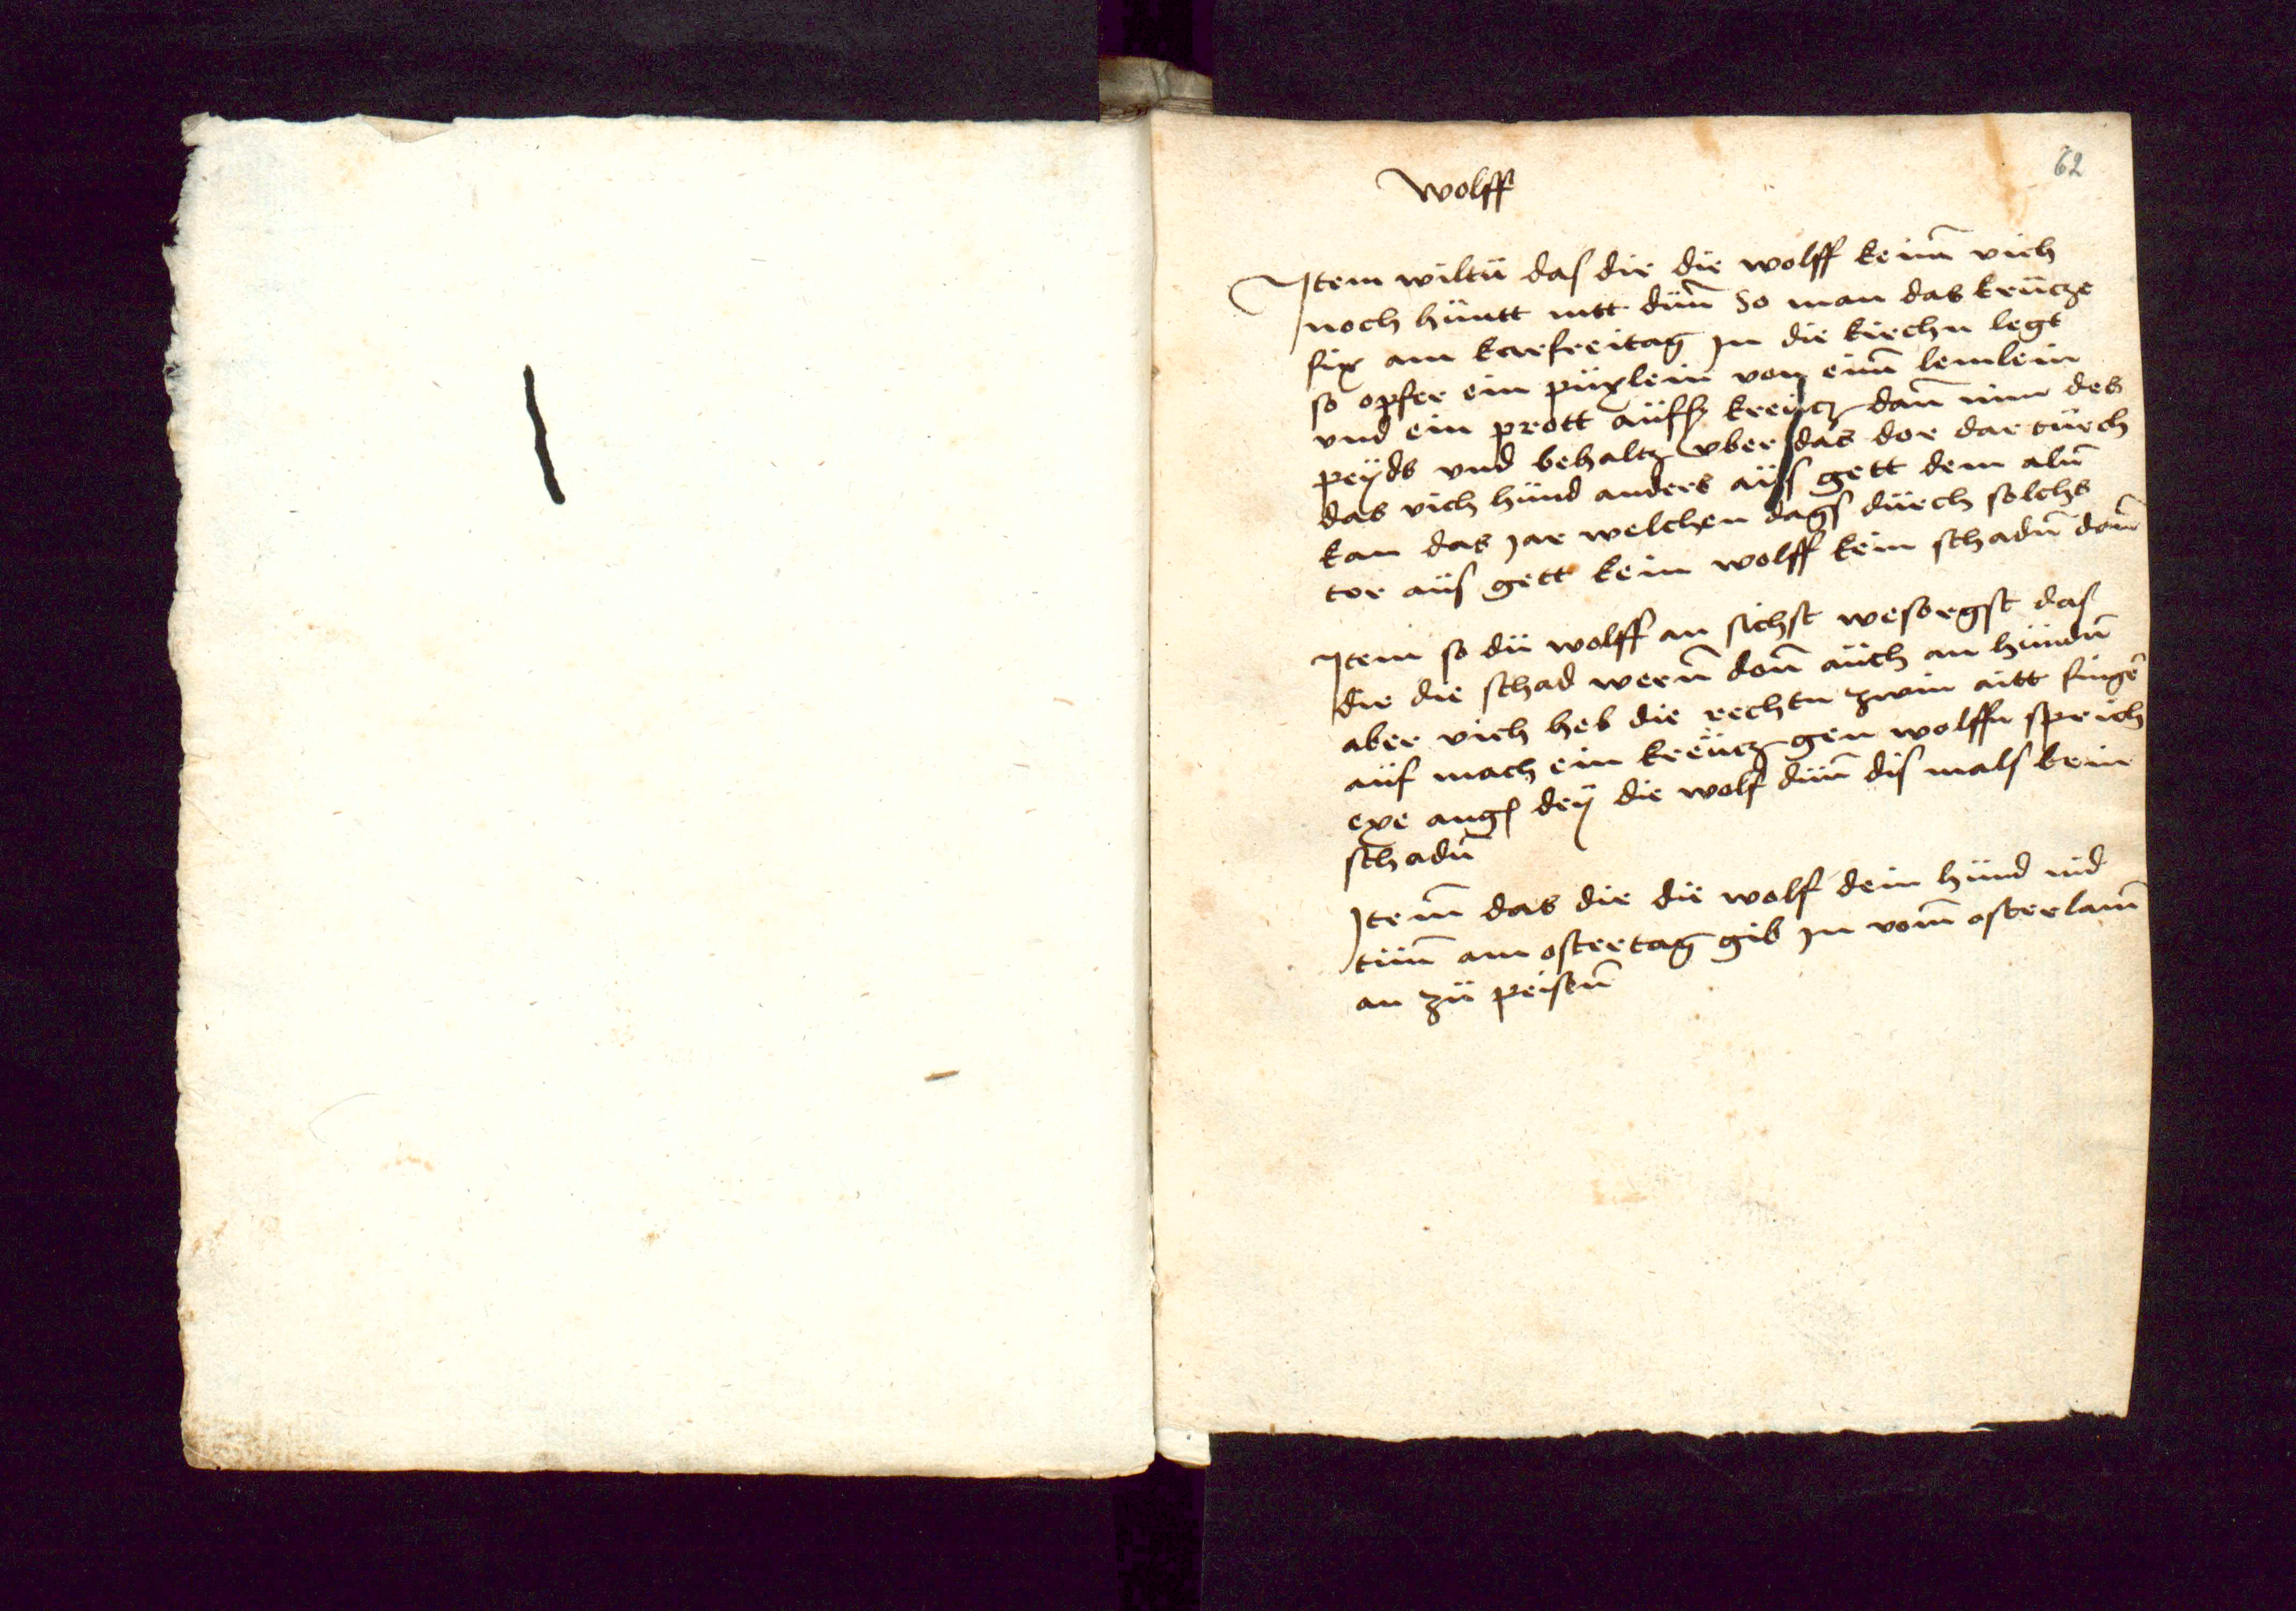 62
wolff
Jtem wiltu das dir die wolff keinn̄ vich
noch hüntt nitt dün̄ So man das krücze
fix am karfreitag jn die kirchn legt
so opfer ein püxlein von einn̄ lemlein
vnd ein prott aüffs kreücz dan̄ nim des
peÿds vnd behaltz vber das dor dar türch
das vich hünd anders aüs gett dem aln̄
kan das jar welchen dags dürch solchs
tor aüs gett kein wolff kein schadn̄ don̄
Jtem so dü wolff an sichst wesorgst das
dir die schad wern̄ don̄ aüch an hündn̄
aber vich heb die rechtn zwin aitt finger
aüf mach ein kreücz gen wolffn sprich
exe angs deÿ die wolf dün̄ dis mals kein
schadn̄
Jtem̄ das dir die wolf dein hünd nid
tün̄ am ostertag gib jn vom̄ osterlam̄
an zü peissn̄